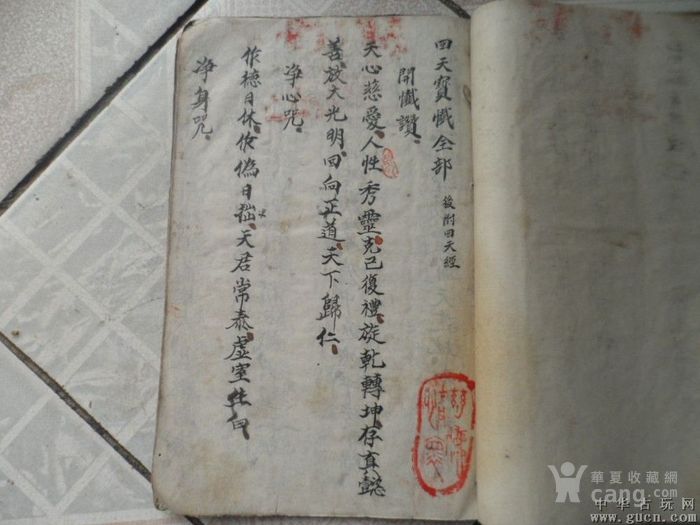 四天寳懺全部 後附四天經
開懺讚
天心慈愛人性秀靈克己復禮旋乾轉坤存真懿
善放大光明回向正道天下歸仁
净心咒
作德日休作偽日拙天君常泰虛室生白
净身咒
華夏收藏網
cang.com
中华古玩网
www.gucn.com